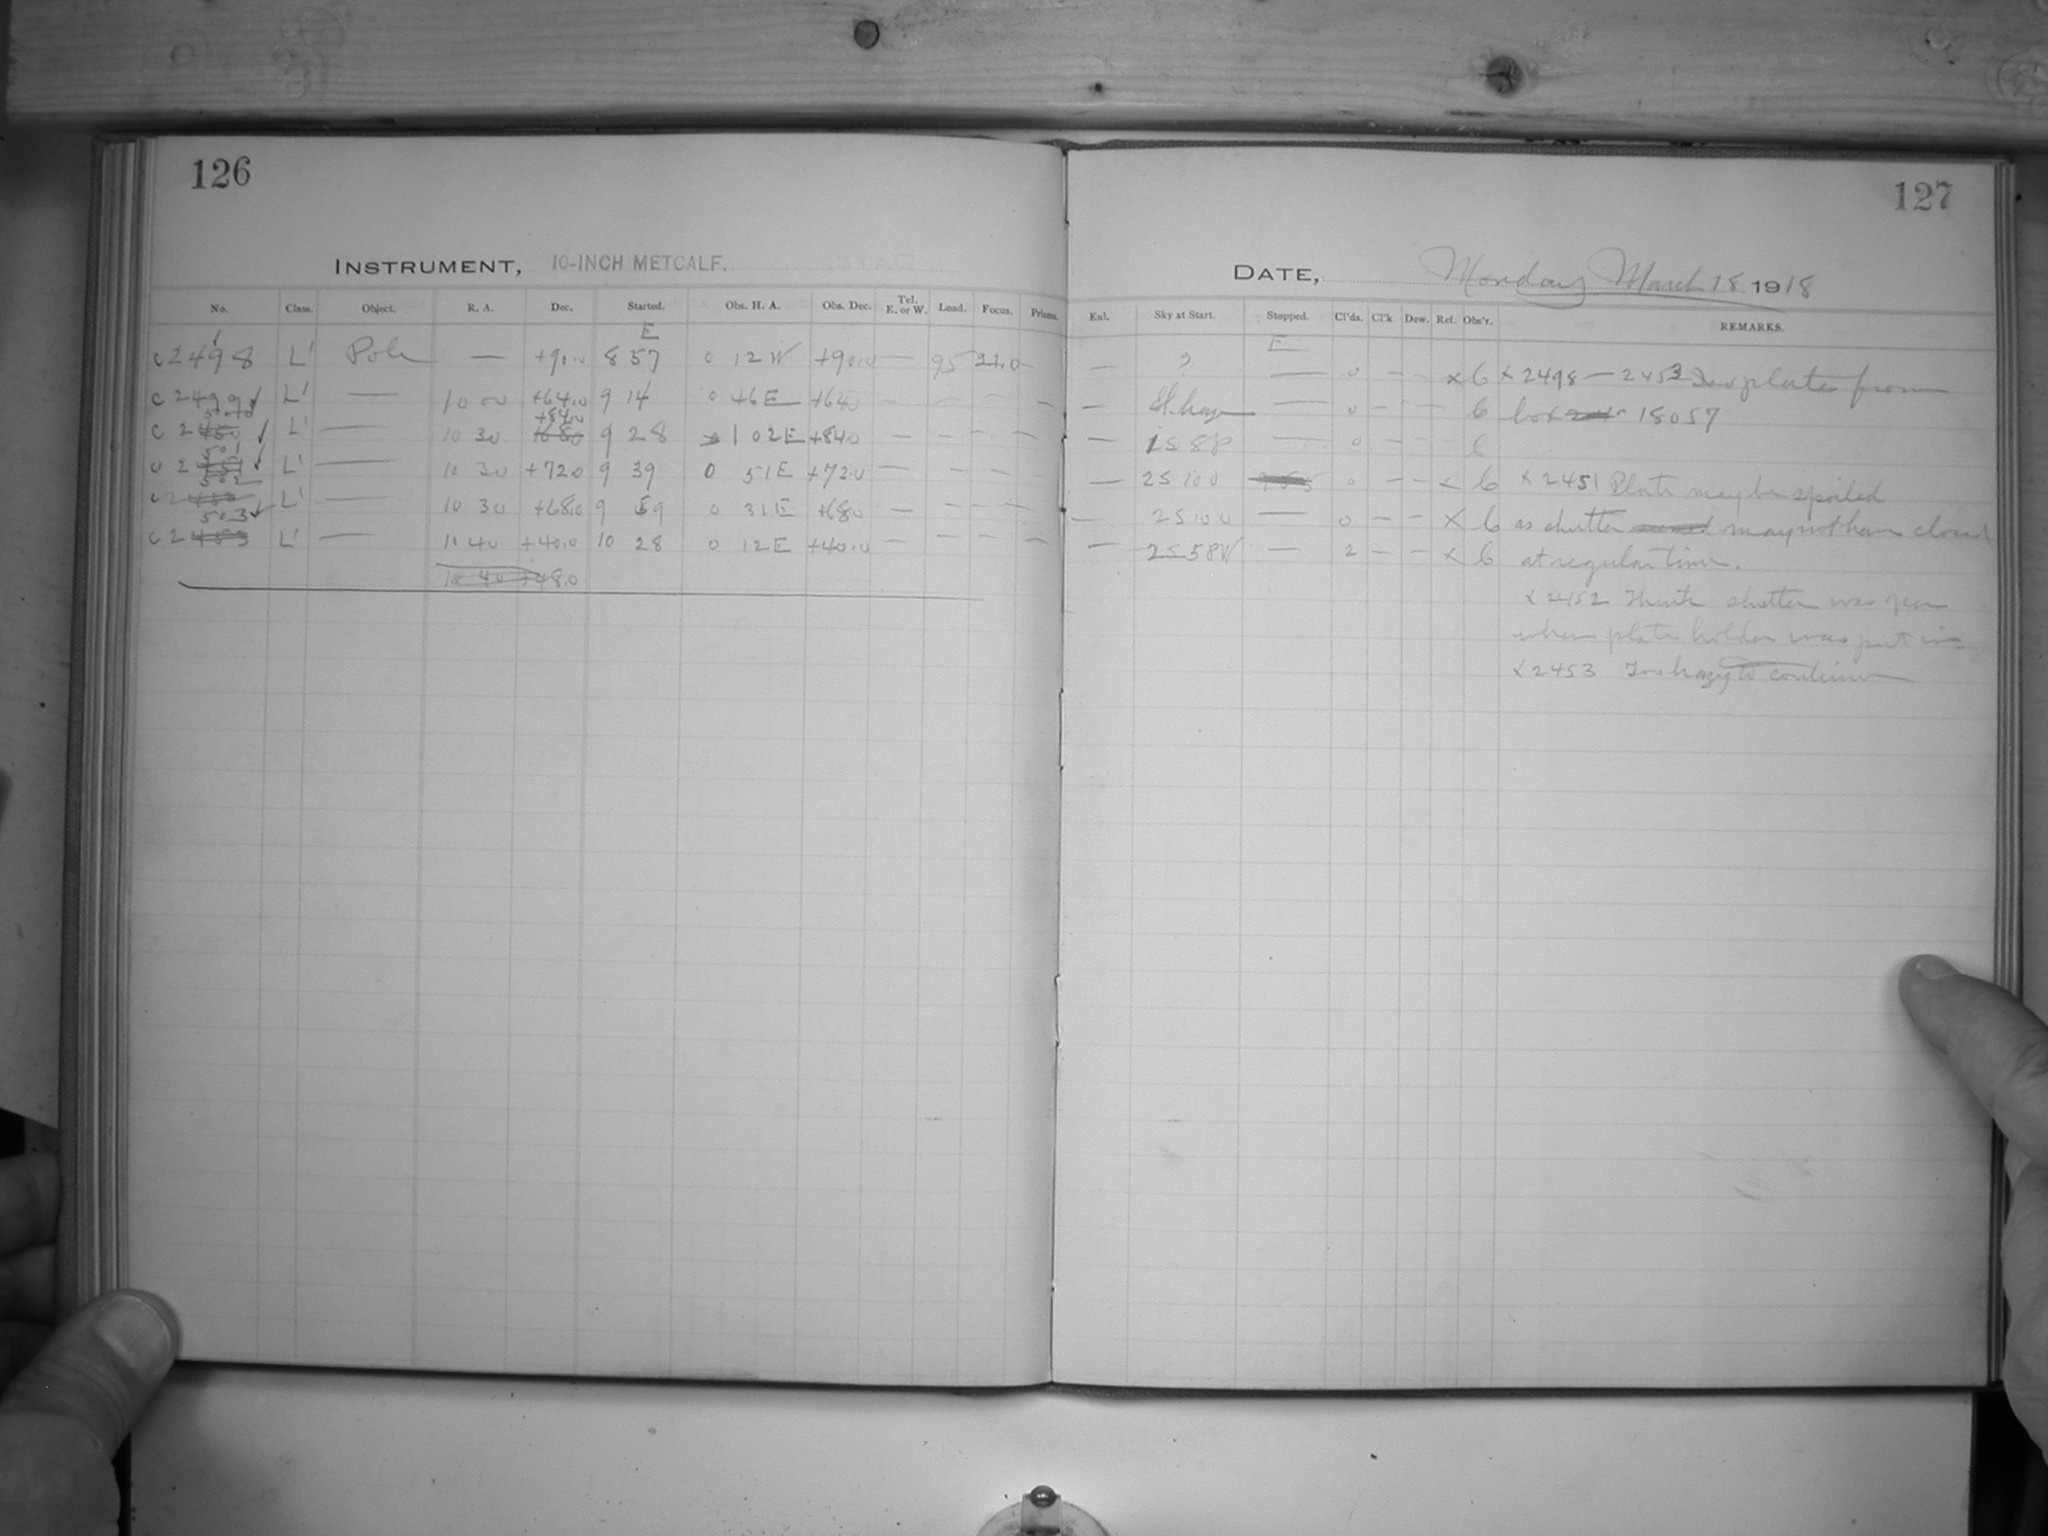 126
INSTRUMENT, 10-INCH METCALF.
No. Class. Object. R. A. Dec. Started. Obs. H. A. Obs. Dec. Tel. E. or W. Load. Focus. Prisms.
E
C 2498 L' Pole — +90.0 8 57 0 12 W +90.0 — 95 21.0 —
C 2499 L' — 10 00 +64.0 9 14 0 46 E +64.0 — — — —
500 +84.0
C 2450 L' — 10 30 +68.0 9 28 1 02 E +84.0 — — — —
501
C 2451 L' — 10 30 +72.0 9 39 0 51 E +72.0 — — — —
502
C 2452 L' — 10 30 +68.0 9 59 0 31 E +68.0 — — — —
503
C 2453 L' — 10 40 +40.0 10 28 0 12 E +40.0 — — — —
10 40 +48.0
127
DATE, Monday March 18 1918
Enl. Sky at Start. Stopped. Cl'ds. Cl'k Dew. Ref. Obs'r. REMARKS.
E
— ? — 0 — — x 6 x 2498 — 2453 Iso plates from
— Sl. hazy — 0 — — 6 box 18057
— 1S 8P — 0 — — 6
— 2S 10 0 0 — — x 6 x 2451 Plate may be spoiled
— 2S 10 0 — 0 — — x 6 as shutter may not have closed
— 2S 5 8W — 2 — — x 6 at regular time.
x 2452 Think shutter was open
when plate holder was put in
x 2453 Too hazy to continue